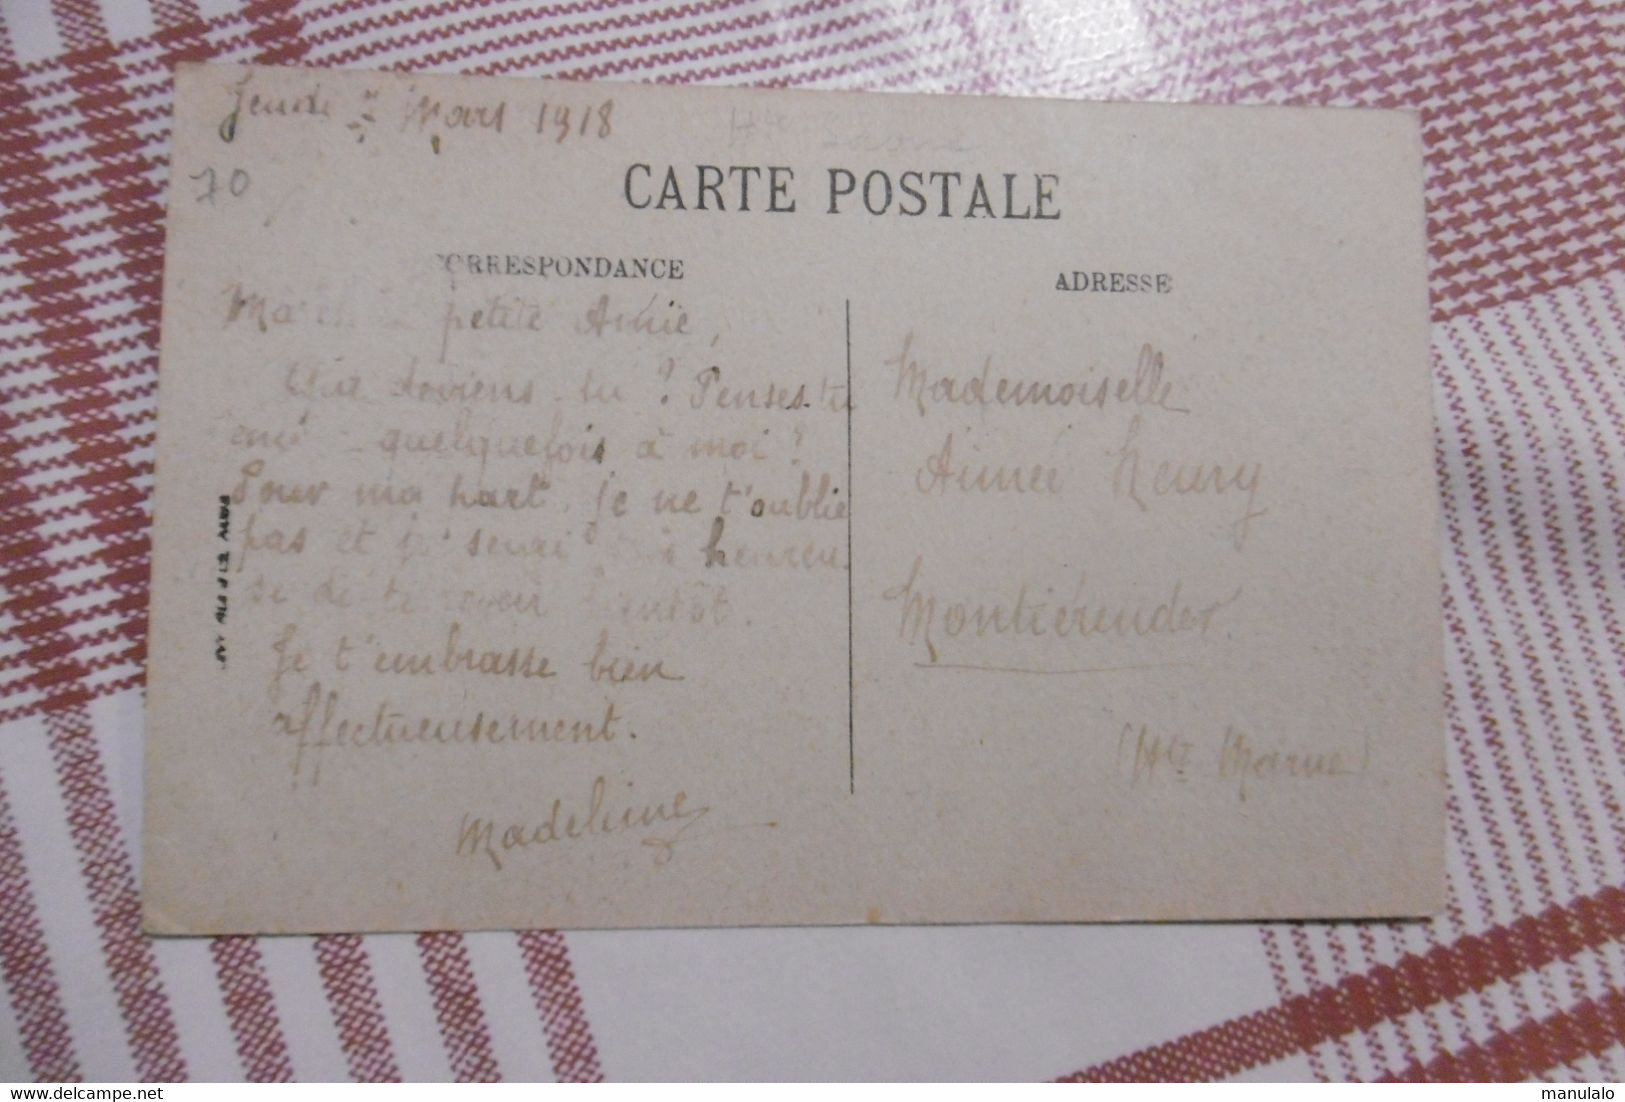 Jeudi Mars 1918
Hte Saone
70
CARTE POSTALE
CORRESPONDANCE
ADRESSE
petite Amie,
Que deviens-tu ? Penses-tu
quelquefois à moi ?
Pour ma part, je ne t'oublie
pas et je serai heureu
se de te revoir bientôt.
Je t'embrasse bien
affectueusement.
Madeleine
Mademoiselle
Aimée Henry
Montiérender
(Hte Marne)
delcampe.net
manulalo